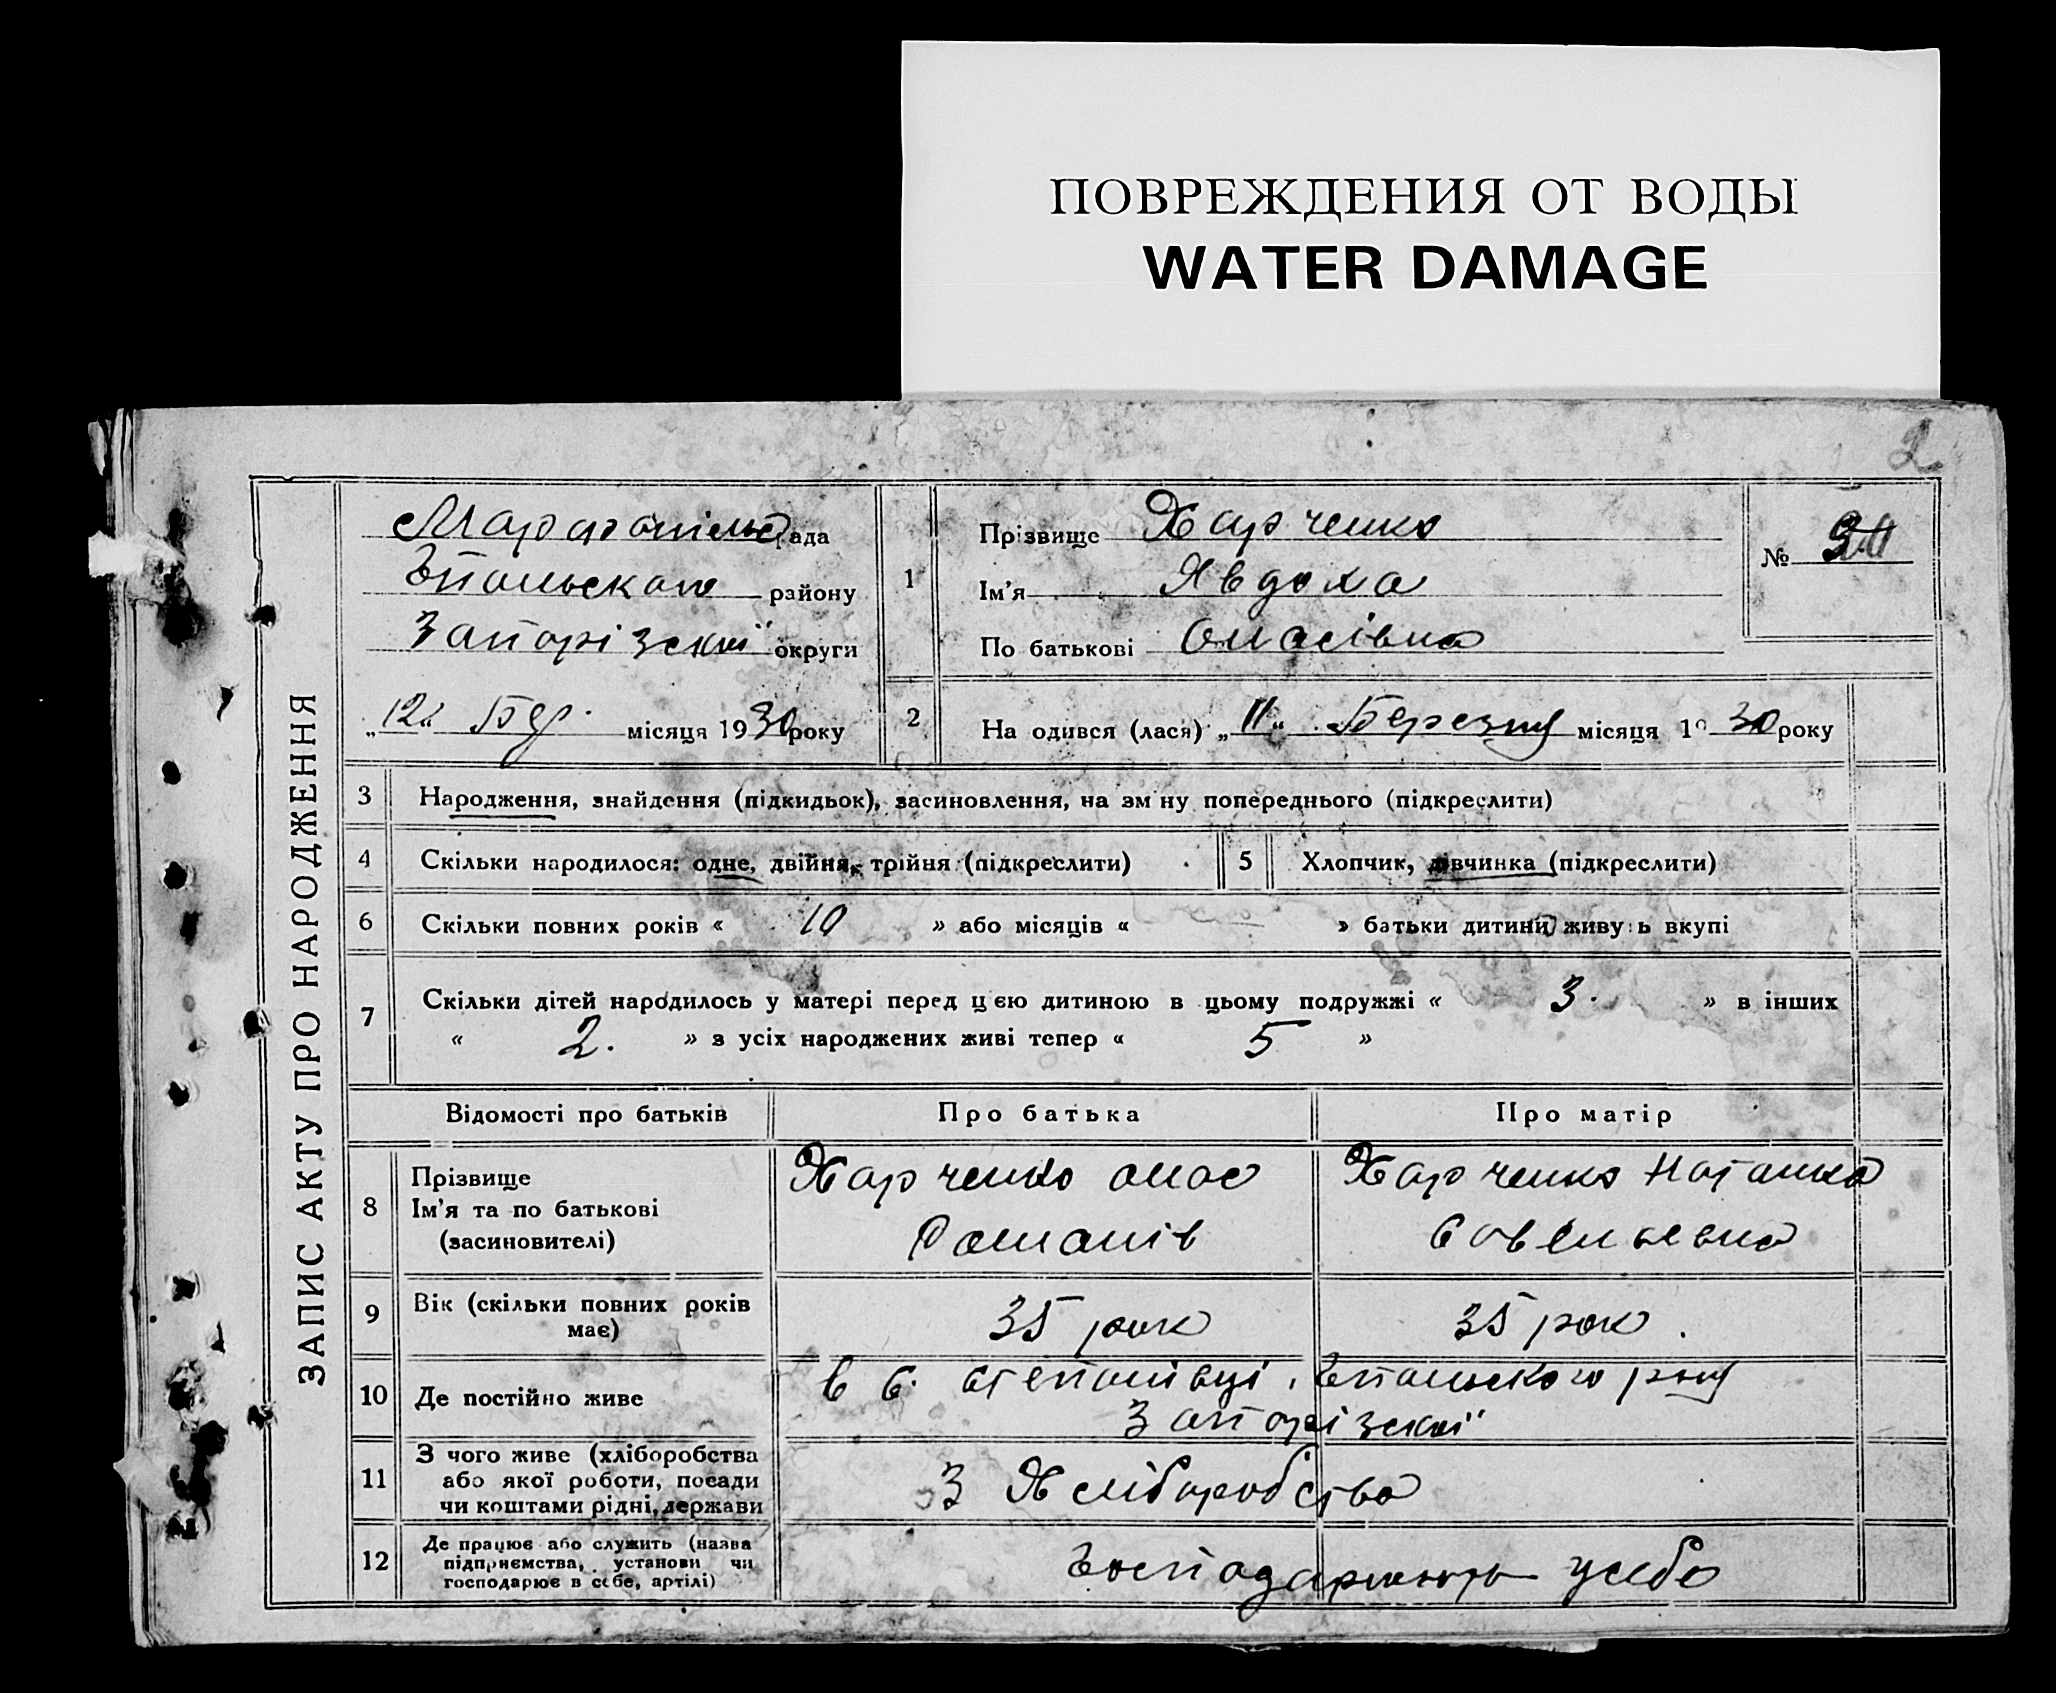 ПОВРЕЖДЕНИЯ ОТ ВОДЫ
WATER DAMAGE
2
ЗАПИС АКТУ ПРО НАРОДЖЕННЯ
Марфопільс рада
Гпольского району
Запорізскої округи
„12“ Бер. місяця 1930 року
1
Прізвище Харченко
Ім'я Явдоха
По батькові Онасівна
№
2
На одився (лася) „11“ Березня місяця 19 30 року
3 Народження, знайдення (підкидьок), засиновлення, на зм ну попереднього (підкреслити)
4 Скільки народилося: одне, двійня, трійня (підкреслити)
5 Хлопчик, дівчинка (підкреслити)
6 Скільки повних років « 10 » або місяців « — » батьки дитини живу ь вкупі
7 Скільки дітей народилось у матері перед цією дитиною в цьому подружжі « 3. » в інших
« 2. » з усіх народжених живі тепер « 5 »
Відомості про батьків
Про батька
Про матір
8
Прізвище
Ім'я та по батькові
(засиновителі)
Харченко Онас
Романів
Харченко Наталка
Савельевна
9
Вік (скільки повних років
має)
35 рок
35 рок.
10 Де постійно живе
в с. Степанівці, Гпольского рну
Запорізскої
11
З чого живе (хліборобства
або якої роботи, посади
чи коштами рідні, держави
З Хліборобства
12
Де працює або служить (назва
підприємства, установи чи
господарює в себе, артілі)
Господарюють у себе